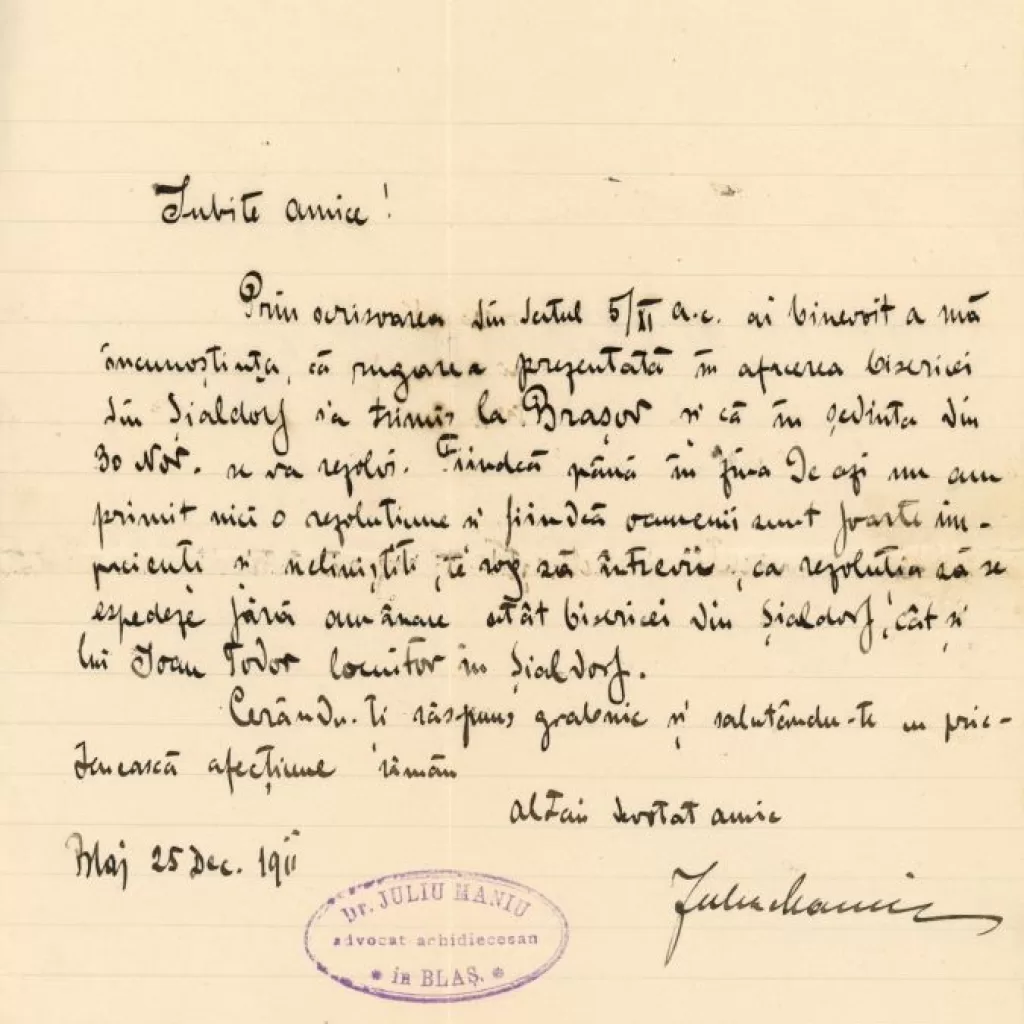 Iubite amice!
Prin scrisoarea din datul 5/XI a.c. ai binevoit a mă
încunoștința, că rugarea prezentată în afacerea bisericei
din Șialdorf s'a trimis la Brașov și că în ședința din
30 Nov. se va rezolvi. Fiindcă până în ziua de azi nu am
primit nici o rezoluțiune și fiindcă oamenii sunt foarte im-
pacienți și neliniștiți, te rog să întrevii, ca rezoluția să se
espedeze fără amânare atât bisericei din Șialdorf, cât și
lui Ioan Todor locuitor în Șialdorf.
Cerându-ți răspuns grabnic și salutându-te cu prie-
tenească afecțiune rămân
al tău devotat amic
Blaj 25 Dec. 1911
Juliu Maniu
Dr. JULIU MANIU
advocat achidiecesan
în BLAȘ.